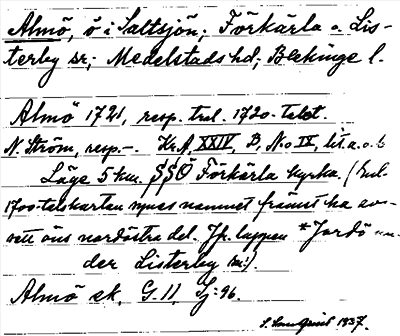 Almö, ö i Saltsjön; Förkärla o. Lis-
terby sr; Medelstads hd; Blekinge l.
Almö 1721, resp. trol. 1720-talet.
N. Ström, resp. -. Kr. A. XXIV, B, N:o IX, lit. a. o. b
Läge 5 km. SSÖ Förkärla kyrka. (Enl.
1700-talskartan synes namnet främst ha av-
sett öns nordöstra del. Jfr lappen *Jordö un-
der Listerby sn:).
Almö ek. G. 11, Sj: 96.
1937.